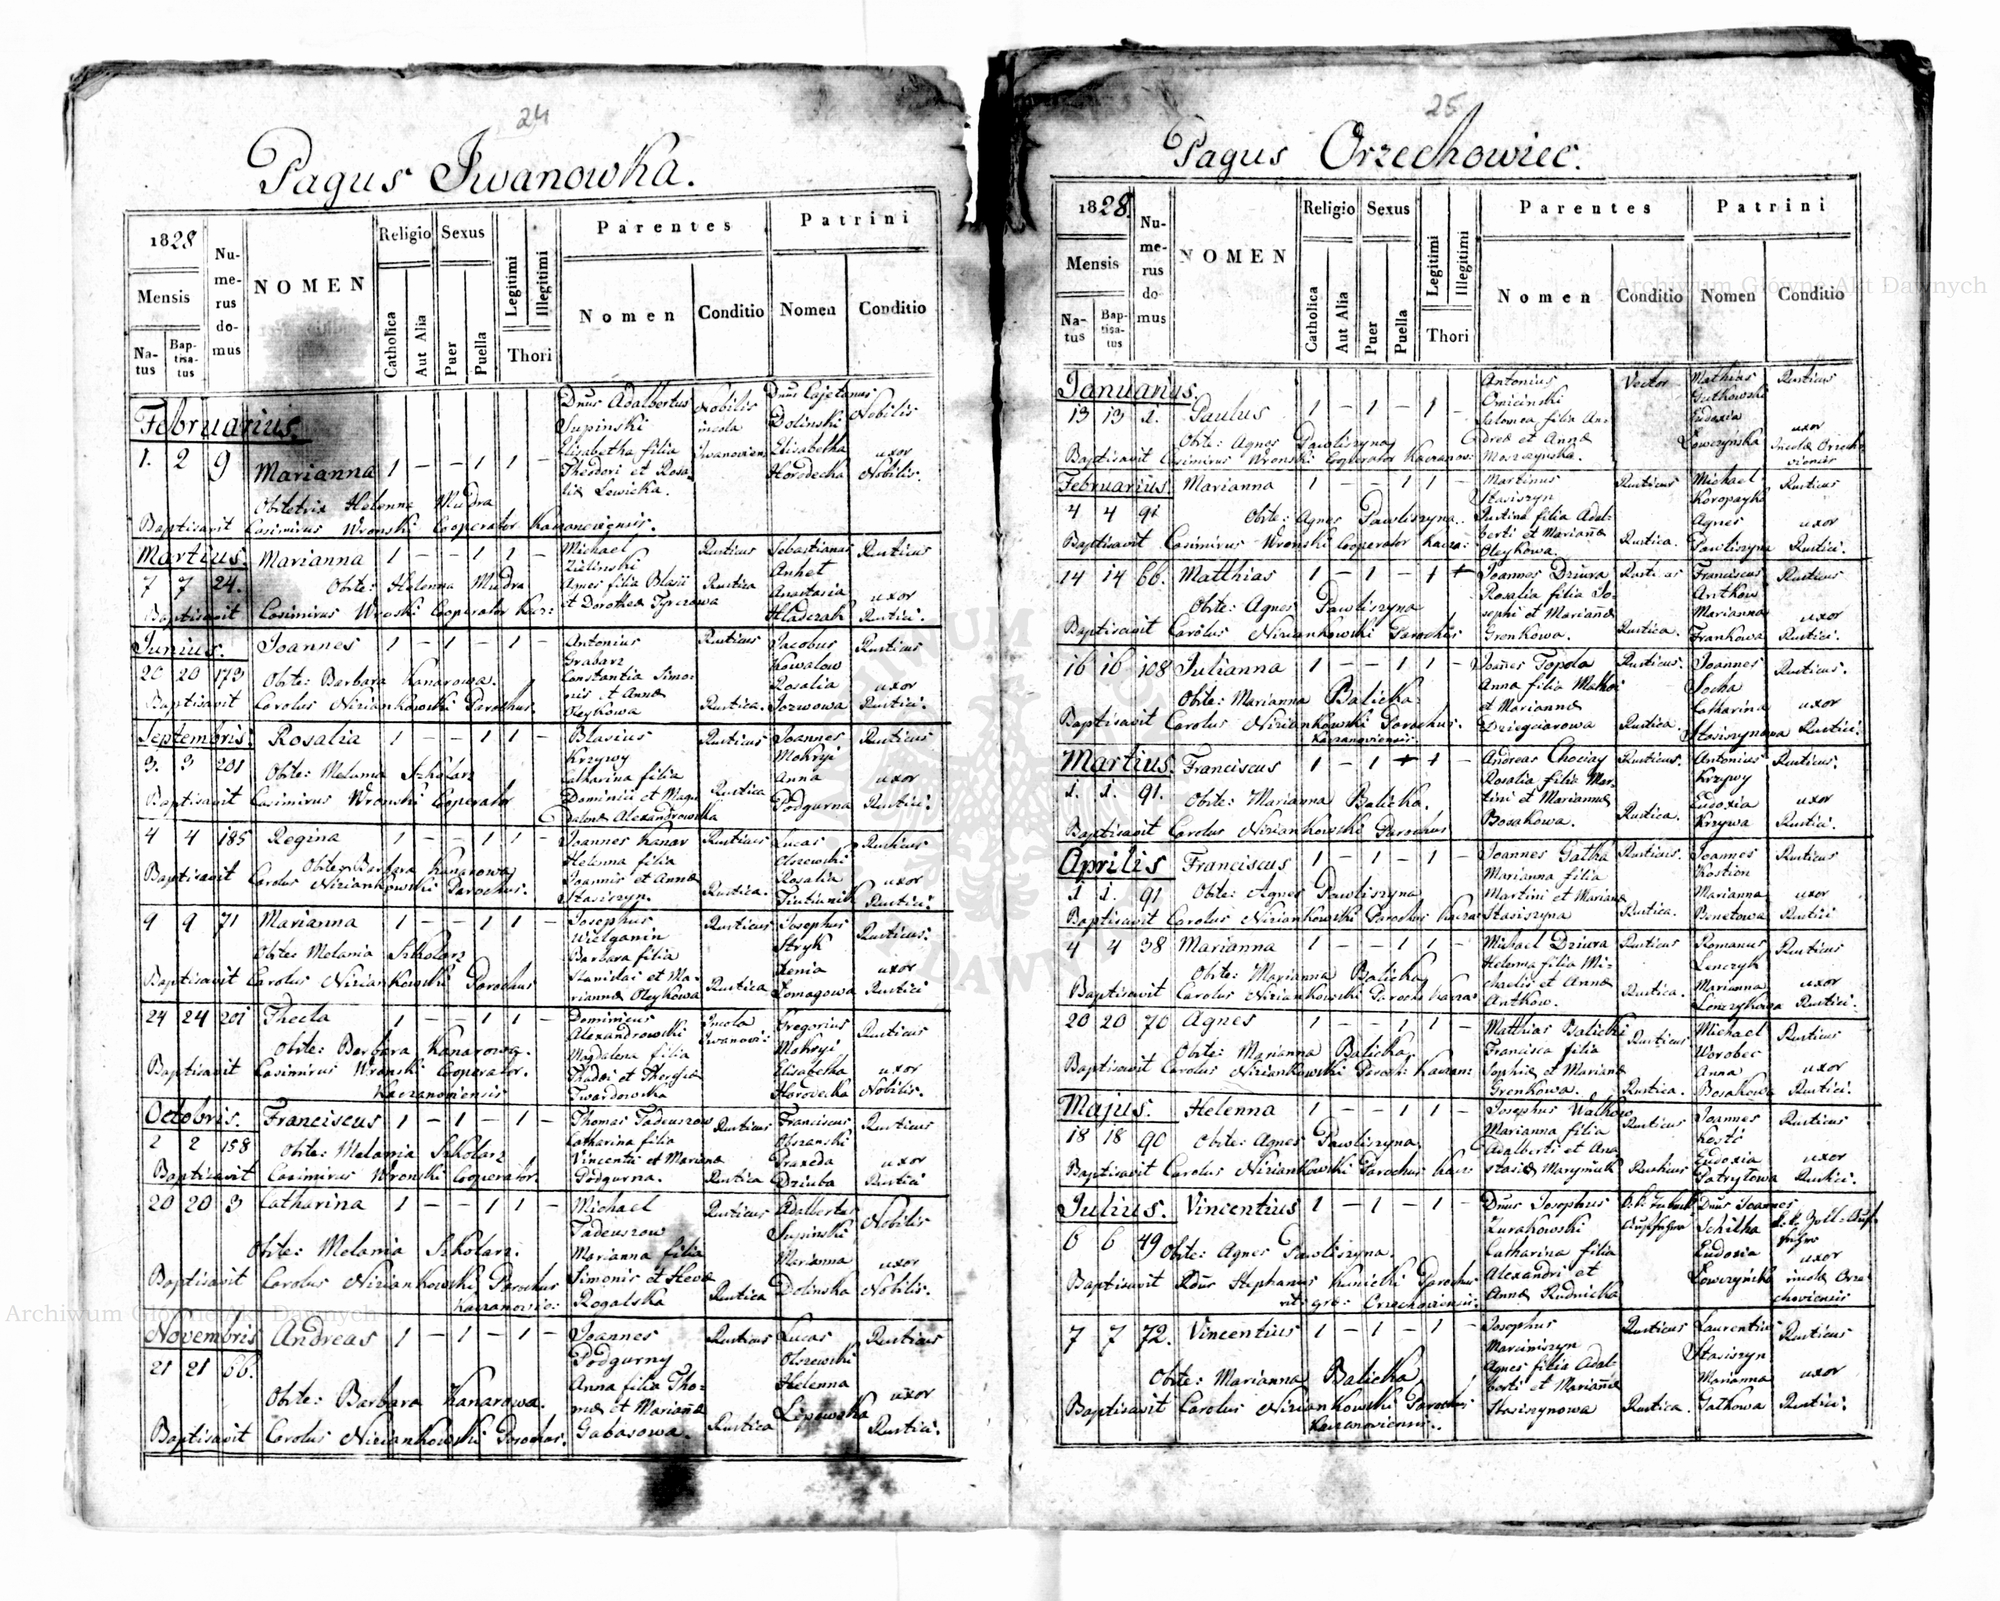 24
Pagus Iwanowka.
1828
Mensis
Na-
tus
Bap-
tisa-
tus
Nu-
me-
rus
do-
mus
NOMEN
Religio
Catholica
Aut Alia
Sexus
Puer
Puella
Legitimi
Illegitimi
Thori
Parentes
Nomen
Conditio
Patrini
Nomen
Conditio
Februarius.
1. 2 9 Marianna 1 – – 1 1 –
Dnus Adalbertus
Nobilis
incola
Elisabetha filia
Theodori et Rosa-
liæ Lewicka.
Dnus Cajetanus
Dolinski
Nobilis
Elisabetha
uxor
Horodecka
Nobilis.
Obstetrix Helenna Mudra
Baptisavit Casimirus Wronski Cooperator Kaczanoviensis.
Martius. Marianna 1 – – 1 1 –
7 7 24. Obste: Helenna Mudra
Baptisavit Casimirus Wronski Cooperator Kacz:
Michael
Zielinski
Rusticus
Agnes filia Blasii
et Dorotheæ
Rustica
Sebastianus
Rusticus
Anastasia
uxor
Rustici.
Junius. Joannes 1 – 1 – 1 –
20 20 173 Obste: Barbara Kanarowa.
Baptisavit Carolus Niziankowski Parochus.
Antonius
Grabarz
Rusticus
Constantia Simo-
nis et Annæ
Oleykowa
Rustica.
Jacobus
Kowalow
Rusticus
Rosalia
uxor
Jozwowa
Rustici.
Septembris. Rosalia 1 – – 1 1 –
3. 3 201 Obste: Melania Szkolarz
Baptisavit Casimirus Wronski Cooperator
Blasius
Krzywy
Rusticus
Catharina filia
Dominici et Mag-
dalenæ Alexandrowska
Rustica
Joannes
Mokryi
Rusticus
Anna
uxor
Podgurna
Rustici.
4 4 185 Regina 1 – – 1 1 –
Obste: Barbara Kanarowa
Baptisavit Carolus Niziankowski Parochus.
Joannes Kanar
Rusticus
Helenna filia
Joannis et Annæ
Stasiszyn.
Rustica.
Lucas
Olszewski
Rusticus
Rosalia
uxor
Rustici.
9 9 71 Marianna 1 – – 1 1 –
Obste: Melania Szkolarz
Baptisavit Carolus Niziankowski Parochus
Josephus
Wielganin
Rusticus
Barbara filia
Stanislai et Ma-
riannæ Oleykowa
Rustica
Josephus
Stryk
Rusticus.
Xenia
uxor
Lomagowa
Rustici
24 24 201 Thecla 1 – – 1 1 –
Obste: Barbara Kanarowa.
Baptisavit Casimirus Wronski Cooperator.
Kaczanoviensis
Dominicus
Alexandrowski
Incola
Iwanovi:
Magdalena filia
Thadei et Theresiæ
Twardowska
Gregorius
Mokryi
Rusticus
Elisabetha
uxor
Horodecka
Nobilis.
Octobris. Franciscus 1 – 1 – 1 –
2 2 158 Obste: Melania Szkolarz
Baptisavit Casimirus Wronski Cooperator
Thomas Tadeuszow
Rusticus
Catharina filia
Vincentii et Mariannæ
Podgurna.
Rustica
Franciscus
Obszanski
Rusticus
Praxeda
uxor
Dziuba
Rustici
20 20 3 Catharina 1 – – 1 1 –
Obste: Melania Szkolarz.
Baptisavit Carolus Niziankowski Parochus
Kaczanovie:
Michael
Tadeuszow
Rusticus
Marianna filia
Simonis et Hevæ
Rogalska
Rustica
Adalbertus
Nobilis
Marianna
uxor
Dolinska
Nobilis.
Novembris Andreas 1 – 1 – 1 –
21 21 66. Obste: Barbara Kanarowa.
Baptisavit Carolus Niziankowski Parochus.
Joannes
Podgurny
Rusticus
Anna filia Tho-
mæ et Mariannæ
Gabasowa.
Rustica
Lucas
Olszewski
Rusticus
Helenna
uxor
Rustici.
25
Pagus Orzechowiec.
1828.
Mensis
Na-
tus
Bap-
tisa-
tus
Nu-
me-
rus
do-
mus
NOMEN
Religio
Catholica
Aut Alia
Sexus
Puer
Puella
Legitimi
Illegitimi
Thori
Parentes
Nomen
Conditio
Patrini
Nomen
Conditio
Januarius.
13 13 1. Paulus 1 – 1 – 1 –
Obste: Agnes Pawliszyna
Baptisavit Casimirus Wronski Cooperator Kaczanov:
Antonius
Omicinski
Salomea filia An-
dreæ et Annæ
Moszczynska.
Mathias
Gutkowski
Rusticus
Eudoxia
uxor
Lowczynska
Incolæ Orzech-
oviensis
Februarius. Marianna 1 – – 1 1 –
4 4 91 Obste: Agnes Pawliszyna.
Baptisavit Casimirus Wronski Cooperator Kacza:
Martinus
Stasiszyn
Rusticus
Justina filia Adal-
berti et Mariannæ
Oleykowa.
Rustica.
Michael
Koropayko
Rusticus
Agnes
uxor
Pawliszyna
Rustici.
14 14 66. Matthias 1 – 1 – 1 –
Obste: Agnes Pawliszyna
Baptisavit Carolus Niziankowski Parochus
Joannes Dziura
Rusticus
Rosalia filia Jo-
sephi et Mariannæ
Gronkowa.
Rustica.
Franciscus
Antkow
Rusticus
Marianna
uxor
Frankowa
Rustici.
16 16 108 Julianna 1 – – 1 1 –
Obste: Marianna Balicka.
Baptisavit Carolus Niziankowski Parochus.
Kaczanoviensis.
Joannes Topola
Rusticus.
Anna filia Mathei
et Mariannæ
Rustica.
Joannes
Socha
Rusticus.
Catharina
uxor
Stasiszynowa
Rustici.
Martius. Franciscus 1 – 1 – 1 –
1. 1. 91. Obste: Marianna Balicka.
Baptisavit Carolus Niziankowski Parochus
Andreas Chociay
Rusticus.
Rosalia filia Mar-
tini et Mariannæ
Bosakowa.
Rustica.
Antonius
Krzywy
Rusticus.
Eudoxia
uxor
Krzywa
Rustici.
Aprilis Franciscus 1 – 1 – 1 –
1 1. 91 Obste: Agnes Pawliszyna
Baptisavit Carolus Niziankowski Parochus Kacza:
Joannes Gatka
Rusticus.
Marianna filia
Martini et Mariannæ
Stasiszyna
Rustica.
Joannes
Kostion
Rusticus
Marianna
uxor
Rustici
4 4 38 Marianna 1 – – 1 1 –
Obste: Marianna Balicka
Baptisavit Carolus Niziankowski Paroch. Kacza:
Michael Dziura
Rusticus
Helenna filia Mi-
chaelis et Annæ
Antkow.
Rustica.
Romanus
Lenczyk
Rusticus
Marianna
uxor
Lenczykowa
Rustici.
20 20 70 Agnes 1 – – 1 1 –
Obste: Marianna Balicka
Baptisavit Carolus Niziankowski Paroch: Kaczan:
Matthias Balicki
Rusticus
Francisca filia
Sophiæ et Mariannæ
Gronkowa.
Rustica.
Michael
Worobec
Rusticus
Anna
uxor
Bosakowa
Rustici.
Majus. Helenna 1 – – 1 1 –
18 18 90 Obste: Agnes Pawliszyna,
Baptisavit Carolus Niziankowski Parochus Kacz:
Josephus Walkow
Rusticus
Marianna filia
Adalberti et Ana-
stasiæ
Joannes
Kość
Rusticus
Eudoxia
uxor
Patrylowa
Rustici.
Julius. Vincentius 1 – 1 – 1 –
6 6 49 Obste: Agnes Pawliszyna.
Baptisavit Rdus Stephanus Kunicki Parochus
rit: gr: Orzechoviensis.
Dnus Josephus
Zurakowski
Catharina filia
Alexandri et
Annæ Rudnicka
Dnus Joannes
Schilka
Eudoxia
uxor
Lowczynska
incolæ Orze-
choviensis
7 7 72. Vincentius 1 – 1 – 1 –
Obste: Marianna Balicka,
Baptisavit Carolus Niziankowski Parochus
Kaczanoviensis.
Josephus
Marciniszyn
Rusticus
Agnes filia Adal-
berti et Mariannæ
Stasiszynowa
Rustica.
Laurentius
Stasiszyn
Rusticus
Marianna
uxor
Gatkowa
Rustici.
Archiwum Główne Akt Dawnych
Archiwum Główne Akt Dawnych